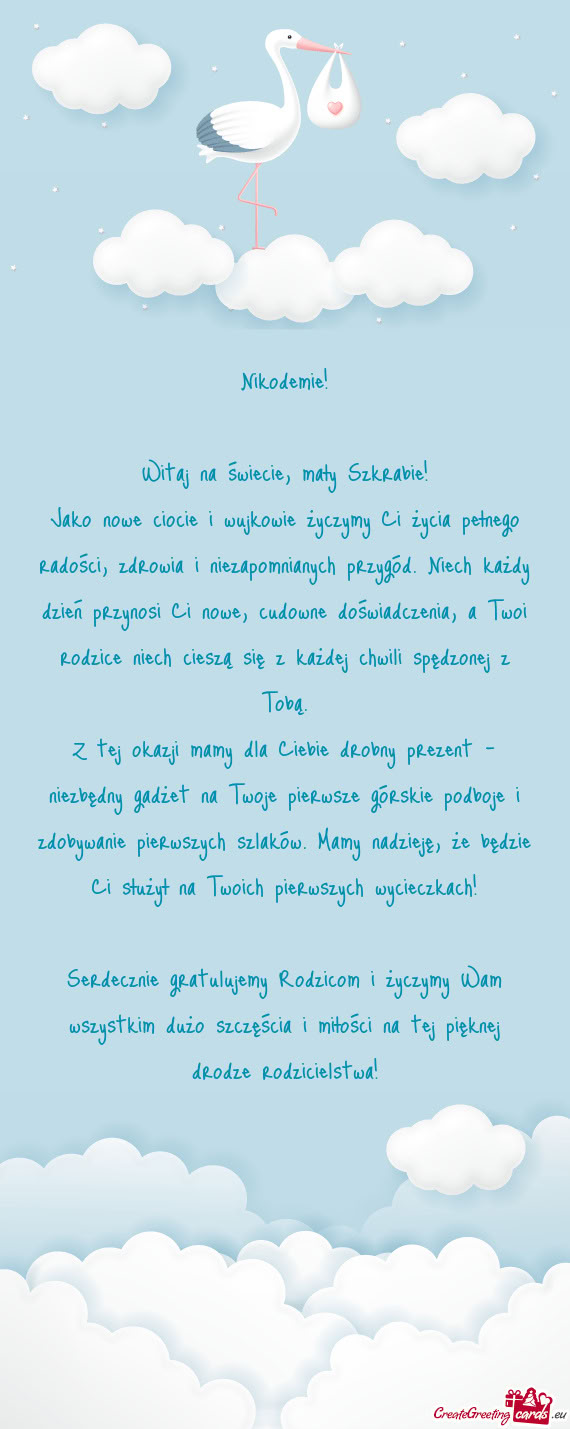 Nikodemie!
Witaj na świecie, mały Szkrabie!
Jako nowe ciocie i wujkowie życzymy Ci życia pełnego
radości, zdrowia i niezapomnianych przygód. Niech każdy
dzień przynosi Ci nowe, cudowne doświadczenia, a Twoi
rodzice niech cieszą się z każdej chwili spędzonej z
Tobą.
Z tej okazji mamy dla Ciebie drobny prezent -
niezbędny gadżet na Twoje pierwsze górskie podboje i
zdobywanie pierwszych szlaków. Mamy nadzieję, że będzie
Ci służył na Twoich pierwszych wycieczkach!
Serdecznie gratulujemy Rodzicom i życzymy Wam
wszystkim dużo szczęścia i miłości na tej pięknej
drodze rodzicielstwa!
CreateGreeting cards .eu